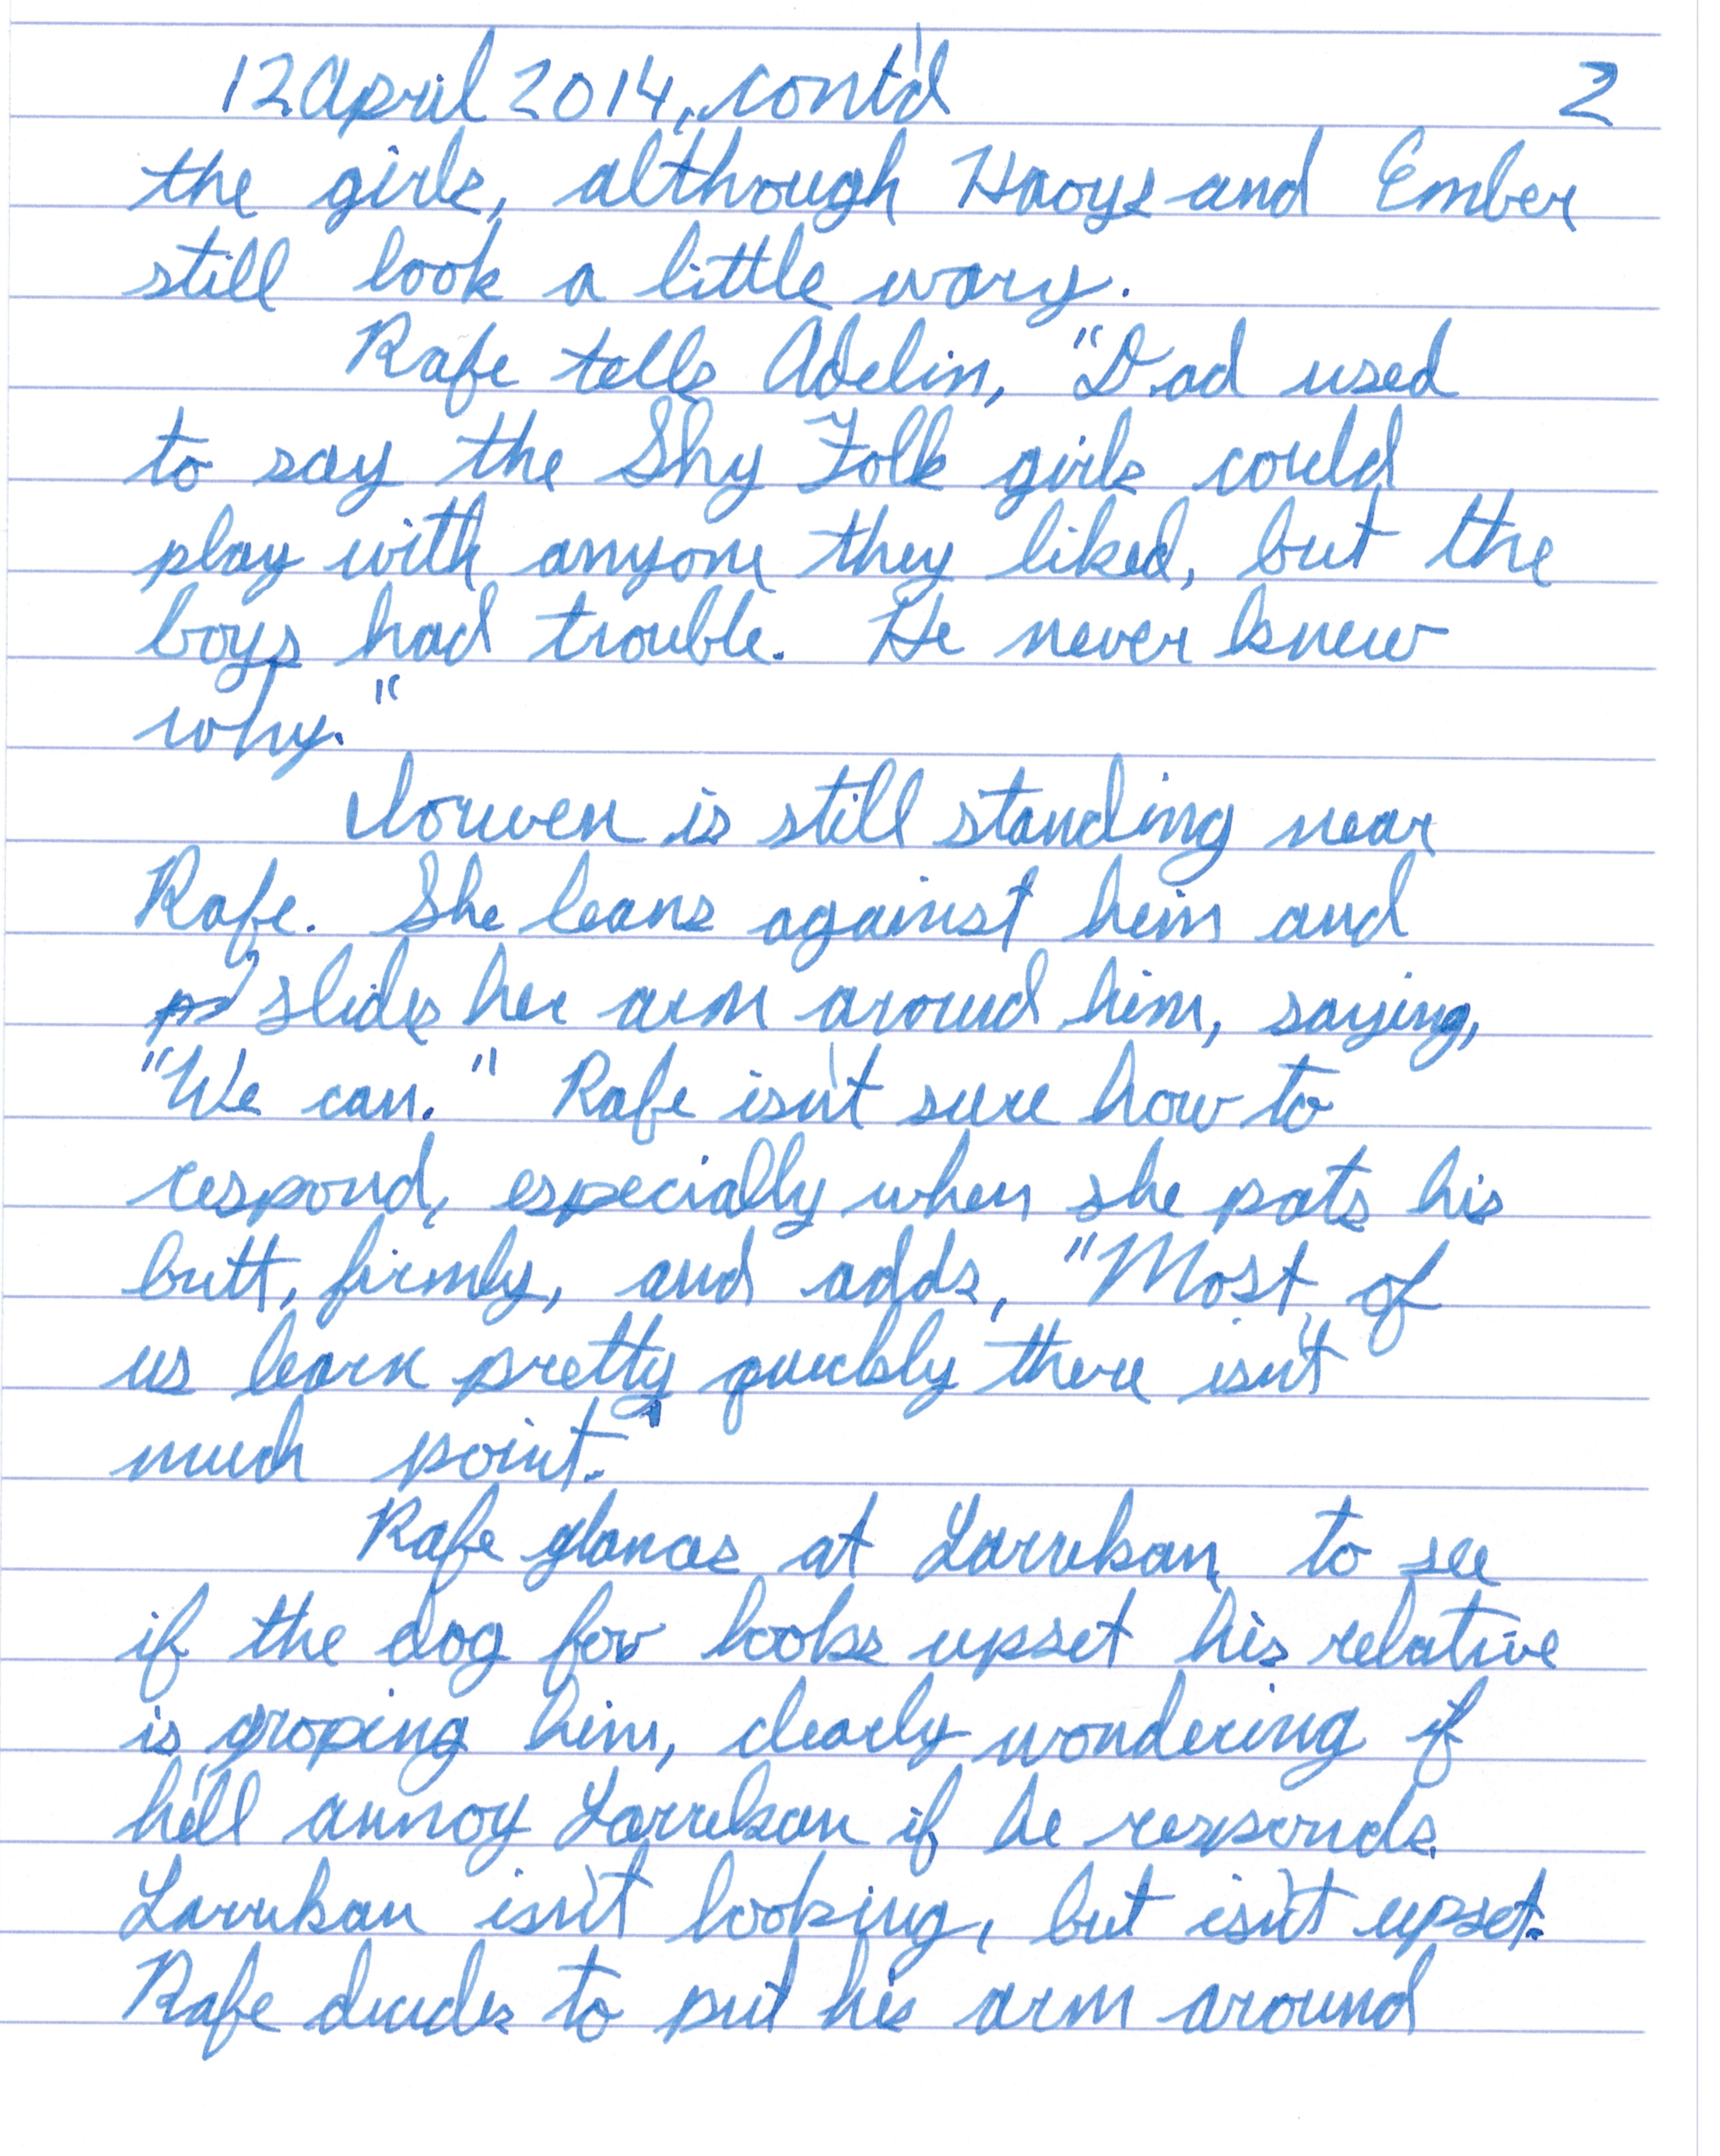 12 April 2014, cont'd 2
the girls, although Haoys and Ember
still look a little wary.
Rafe tells Adelin, "Dad used
to say the Shy Folk girls could
play with anyone they liked, but the
boys had trouble. He never knew
why."
Iouwen is still standing near
Rafe. She leans against him and
slides her arm around him, saying,
"We can." Rafe isn't sure how to
respond, especially when she pats his
butt, firmly, and adds, "Most of
us learn pretty quickly there isn't
much point."
Rafe glances at Larrekan to see
if the dog fov looks upset his relative
is groping him, clearly wondering if
he'll annoy Larrekan if he responds.
Larrekan isn't looking, but isn't upset.
Rafe decides to put his arm around